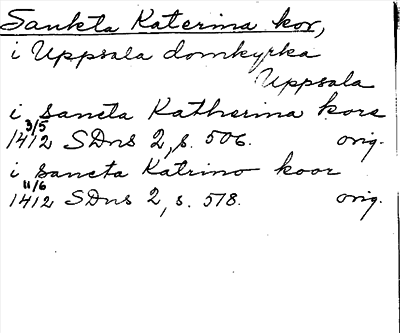 Sankta Katerina kor,
i Uppsala domkyrka
Uppsala
i sancta Katherina kore
3/5
1412 SDns 2, s. 506. orig.
i sancta Katrino koor
11/6
1412 SDns 2, s. 518. orig.